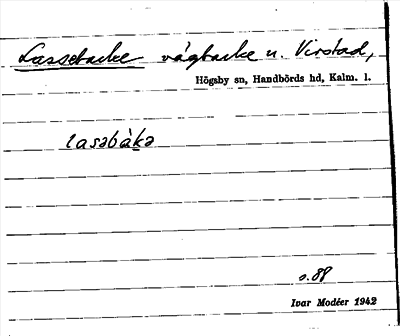 Lassebacke vägbacke n. Virstad,
Högsby sn, Handbörds hd, Kalm. l.
lasəbàkə
s. 88
Ivar Modéer 1942